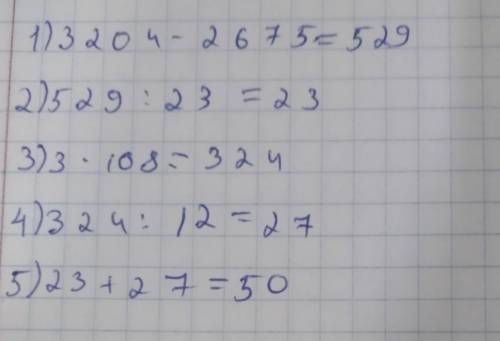 1) 3204 - 2675 = 529
2) 529 : 23 = 23
3) 3 · 108 = 324
4) 324 : 12 = 27
5) 23 + 27 = 50